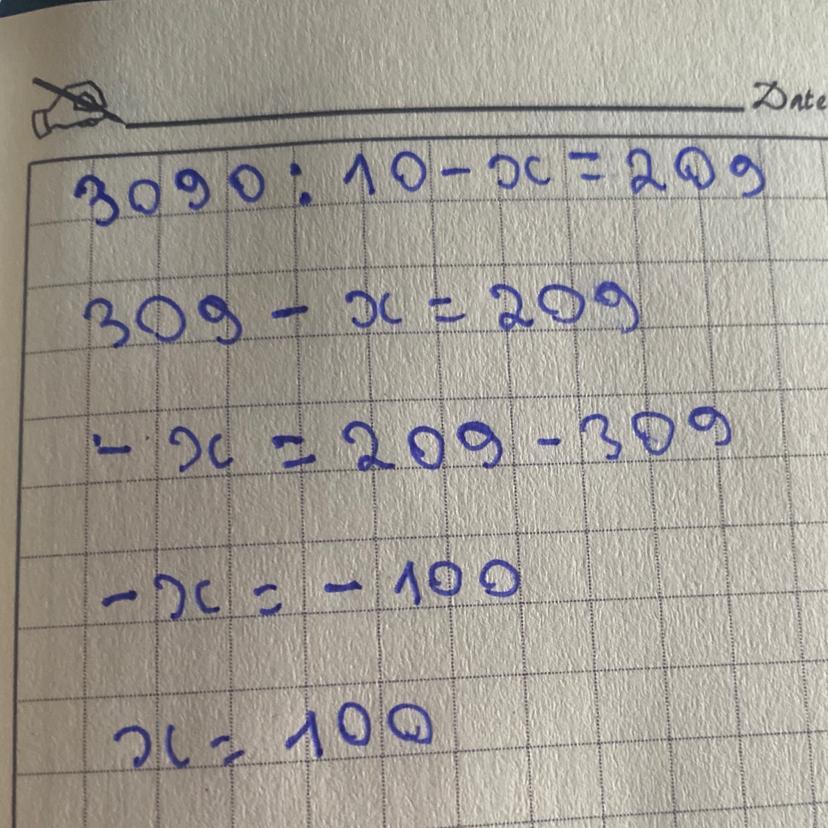 Date
3090 : 10 - x = 209
309 - x = 209
- x = 209 - 309
- x = - 100
x = 100